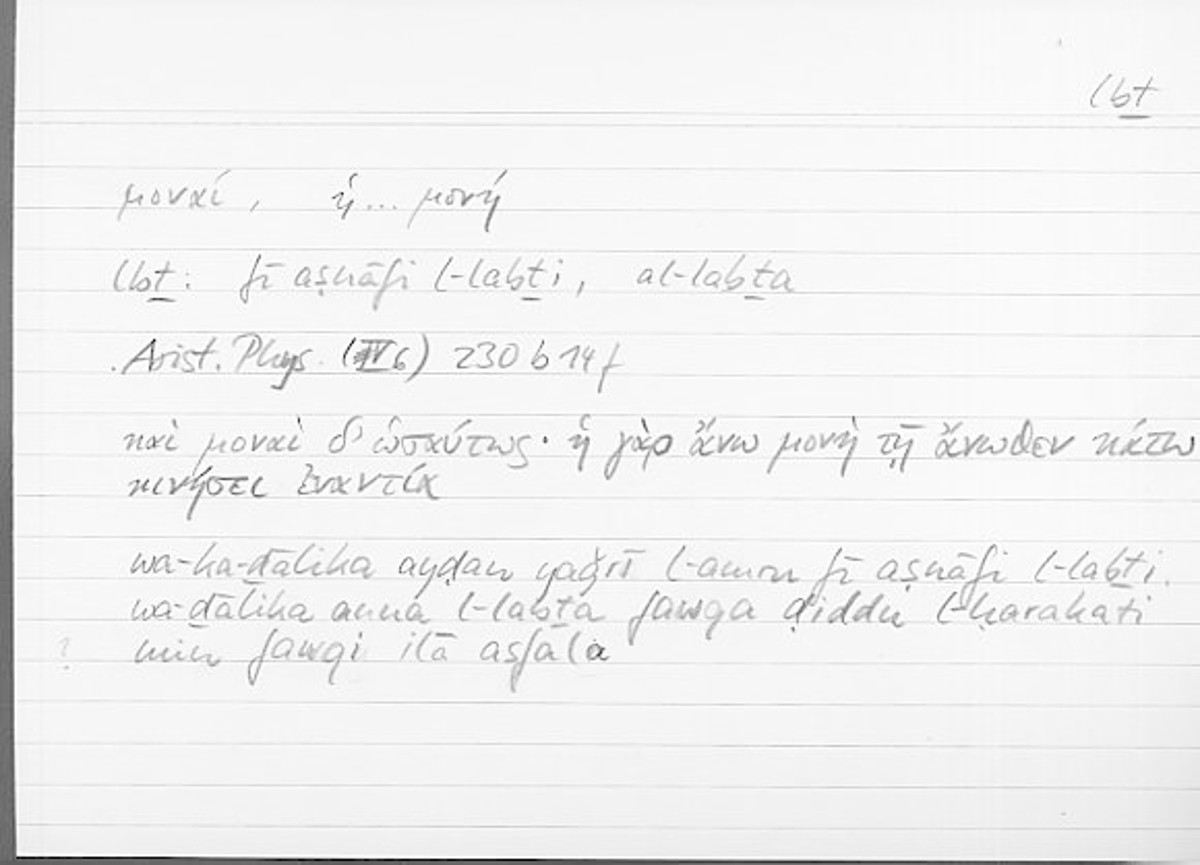 lbṯ
μοναί, ἡ... μονή
lbṯ: fī aṣnāfi l-labṯi, al-labṯa
Arist. Phys. (IV6) 230 b 14f
καὶ μοναὶ δ' ὡσαύτως· ἡ γὰρ ἄνω μονὴ τῇ ἄνωθεν κάτω
κινήσει ἐναντία
wa-ka-ḏālika ayḍan yaǧrī l-amru fī aṣnāfi l-labṯi.
wa-ḏālika anna l-labṯa fawqa ḍiddu l-ḥarakati
? min fawqi ilā asfala